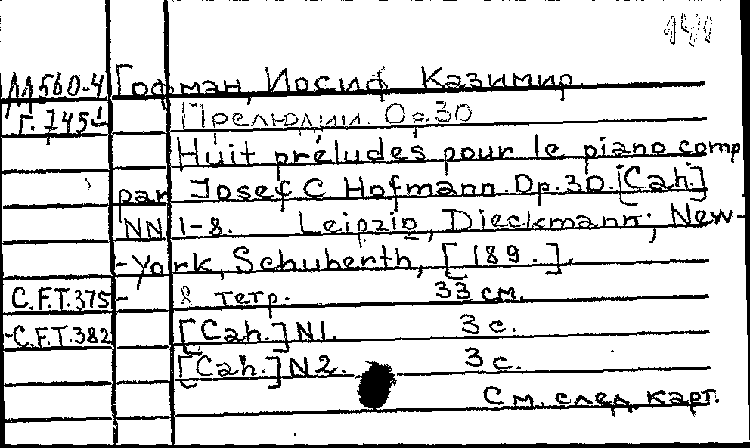 1/1
М560-4 Гофман, Иосиф Казимир.
Г.745 Прелюдии. Op.30
Huit préludes pour le piano comp.
par Josef C Hofmann. Op.30. [Cah.]
NN 1-8. Leipzig, Dieckmann; New-
-York, Schuberth, [189 . ].
C.F.T.375- 8 тетр. 33 см.
-C.F.T.382 [Cah.] N1. 3 с.
[Cah.] N2. 3 с.
См. след. карт.